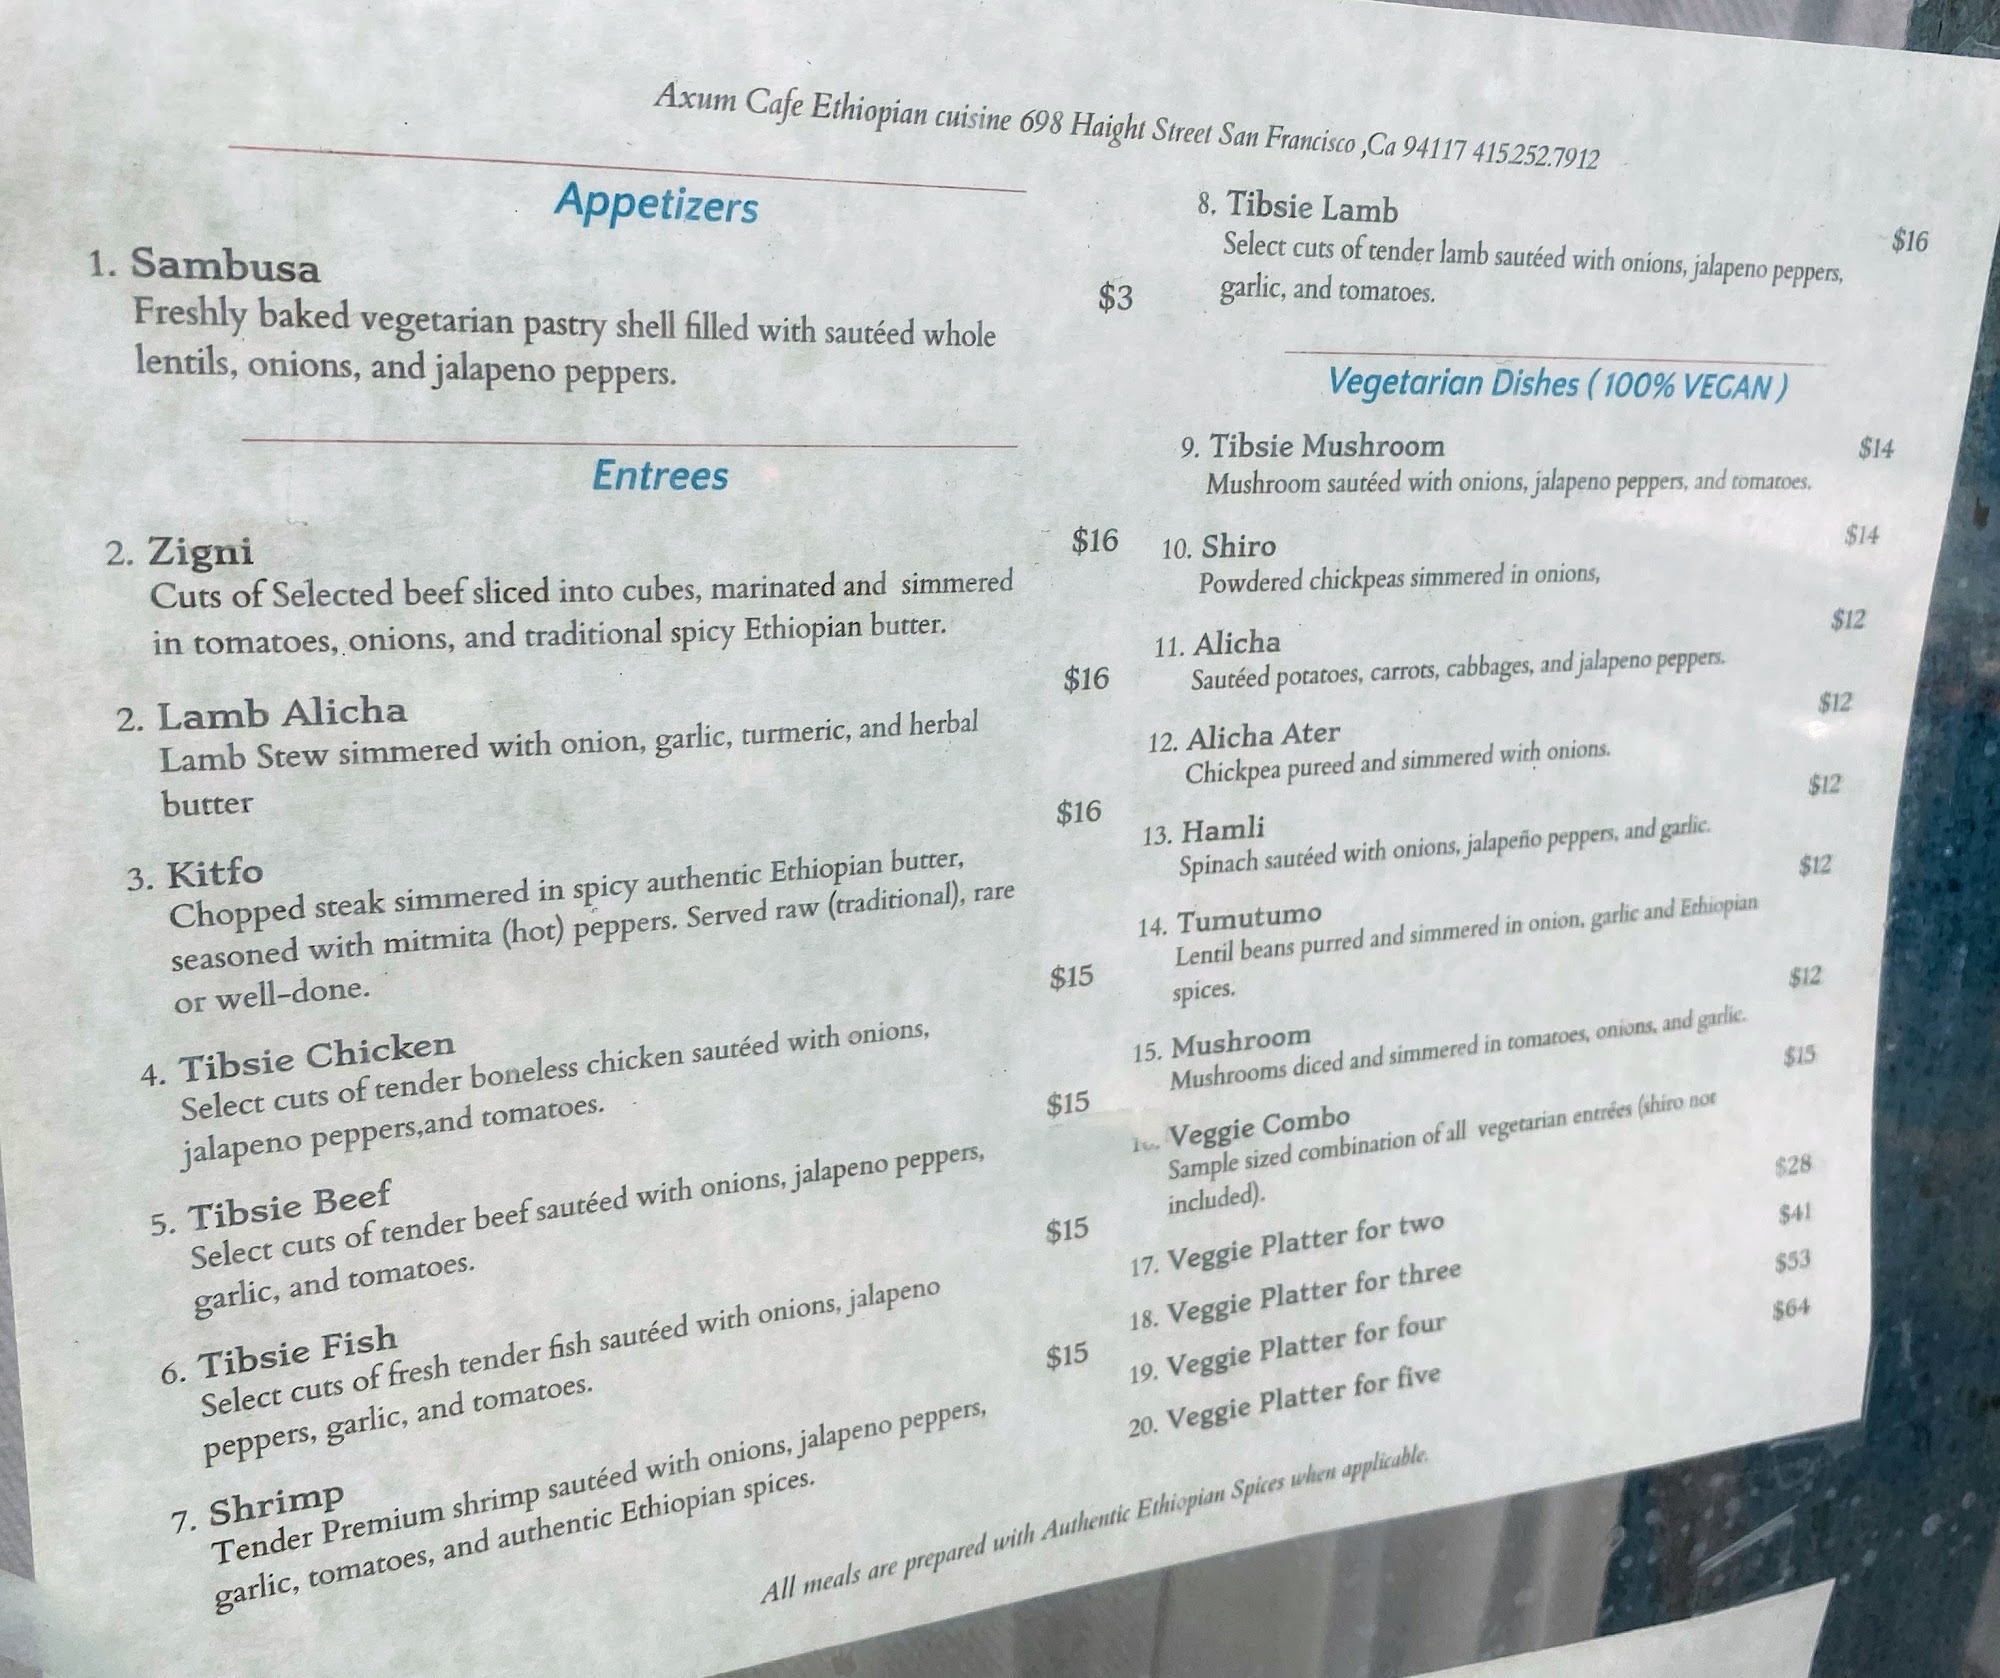 Axum Cafe Ethiopian cuisine 698 Haight Street San Francisco ,Ca 94117 415.252.7912
Appetizers
1. Sambusa
$3
Freshly baked vegetarian pastry shell filled with sautéed whole
lentils, onions, and jalapeno peppers.
Entrees
2. Zigni
$16
Cuts of Selected beef sliced into cubes, marinated and simmered
in tomatoes, onions, and traditional spicy Ethiopian butter.
2. Lamb Alicha
$16
Lamb Stew simmered with onion, garlic, turmeric, and herbal
butter
3. Kitfo
$16
Chopped steak simmered in spicy authentic Ethiopian butter,
seasoned with mitmita (hot) peppers. Served raw (traditional), rare
or well-done.
4. Tibsie Chicken
$15
Select cuts of tender boneless chicken sautéed with onions,
jalapeno peppers,and tomatoes.
5. Tibsie Beef
$15
Select cuts of tender beef sautéed with onions, jalapeno peppers,
garlic, and tomatoes.
6. Tibsie Fish
$15
Select cuts of fresh tender fish sautéed with onions, jalapeno
peppers, garlic, and tomatoes.
7. Shrimp
$15
Tender Premium shrimp sautéed with onions, jalapeno peppers,
garlic, tomatoes, and authentic Ethiopian spices.
8. Tibsie Lamb
$16
Select cuts of tender lamb sautéed with onions, jalapeno peppers,
garlic, and tomatoes.
Vegetarian Dishes ( 100% VEGAN )
9. Tibsie Mushroom
$14
Mushroom sautéed with onions, jalapeno peppers, and tomatoes.
10. Shiro
$14
Powdered chickpeas simmered in onions,
11. Alicha
$12
Sautéed potatoes, carrots, cabbages, and jalapeno peppers.
12. Alicha Ater
$12
Chickpea pureed and simmered with onions.
13. Hamli
$12
Spinach sautéed with onions, jalapeño peppers, and garlic.
14. Tumutumo
$12
Lentil beans purred and simmered in onion, garlic and Ethiopian
spices.
15. Mushroom
$12
Mushrooms diced and simmered in tomatoes, onions, and garlic.
Veggie Combo
$15
Sample sized combination of all vegetarian entrées (shiro not
included).
17. Veggie Platter for two
$28
18. Veggie Platter for three
$41
19. Veggie Platter for four
$53
20. Veggie Platter for five
$64
All meals are prepared with Authentic Ethiopian Spices when applicable.